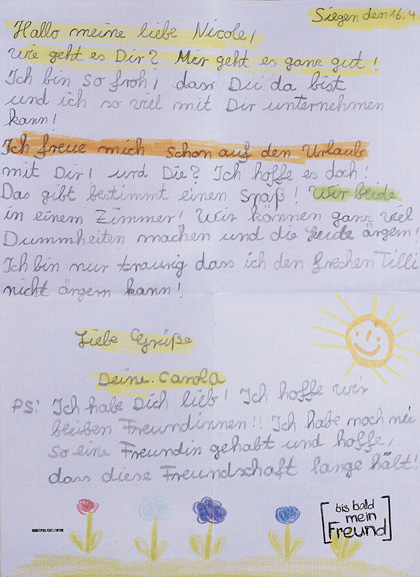 Siegen den 16.4.
Hallo meine liebe Nicole,
wie geht es Dir? Mir geht es ganz gut!
Ich bin so froh, dass Du da bist
und ich so viel mit Dir unternehmen
kann!
Ich freue mich schon auf den Urlaub
mit Dir! und Die? Ich hoffe es doch!
Das gibt bestimmt einen Spaß! Wir beide
in einem Zimmer! Wir können ganz viel
Dummheiten machen und die Leute ärgern!
Ich bin nur traurig dass ich den frechen Tilli
nicht ärgern kann!
Liebe Grüße
Deine Carola
PS: Ich habe Dich lieb! Ich hoffe wir
bleiben Freundinnen!! Ich habe noch nie
so eine Freundin gehabt und hoffe,
dass diese Freundschaft lange hält!
bis bald
mein
Freund